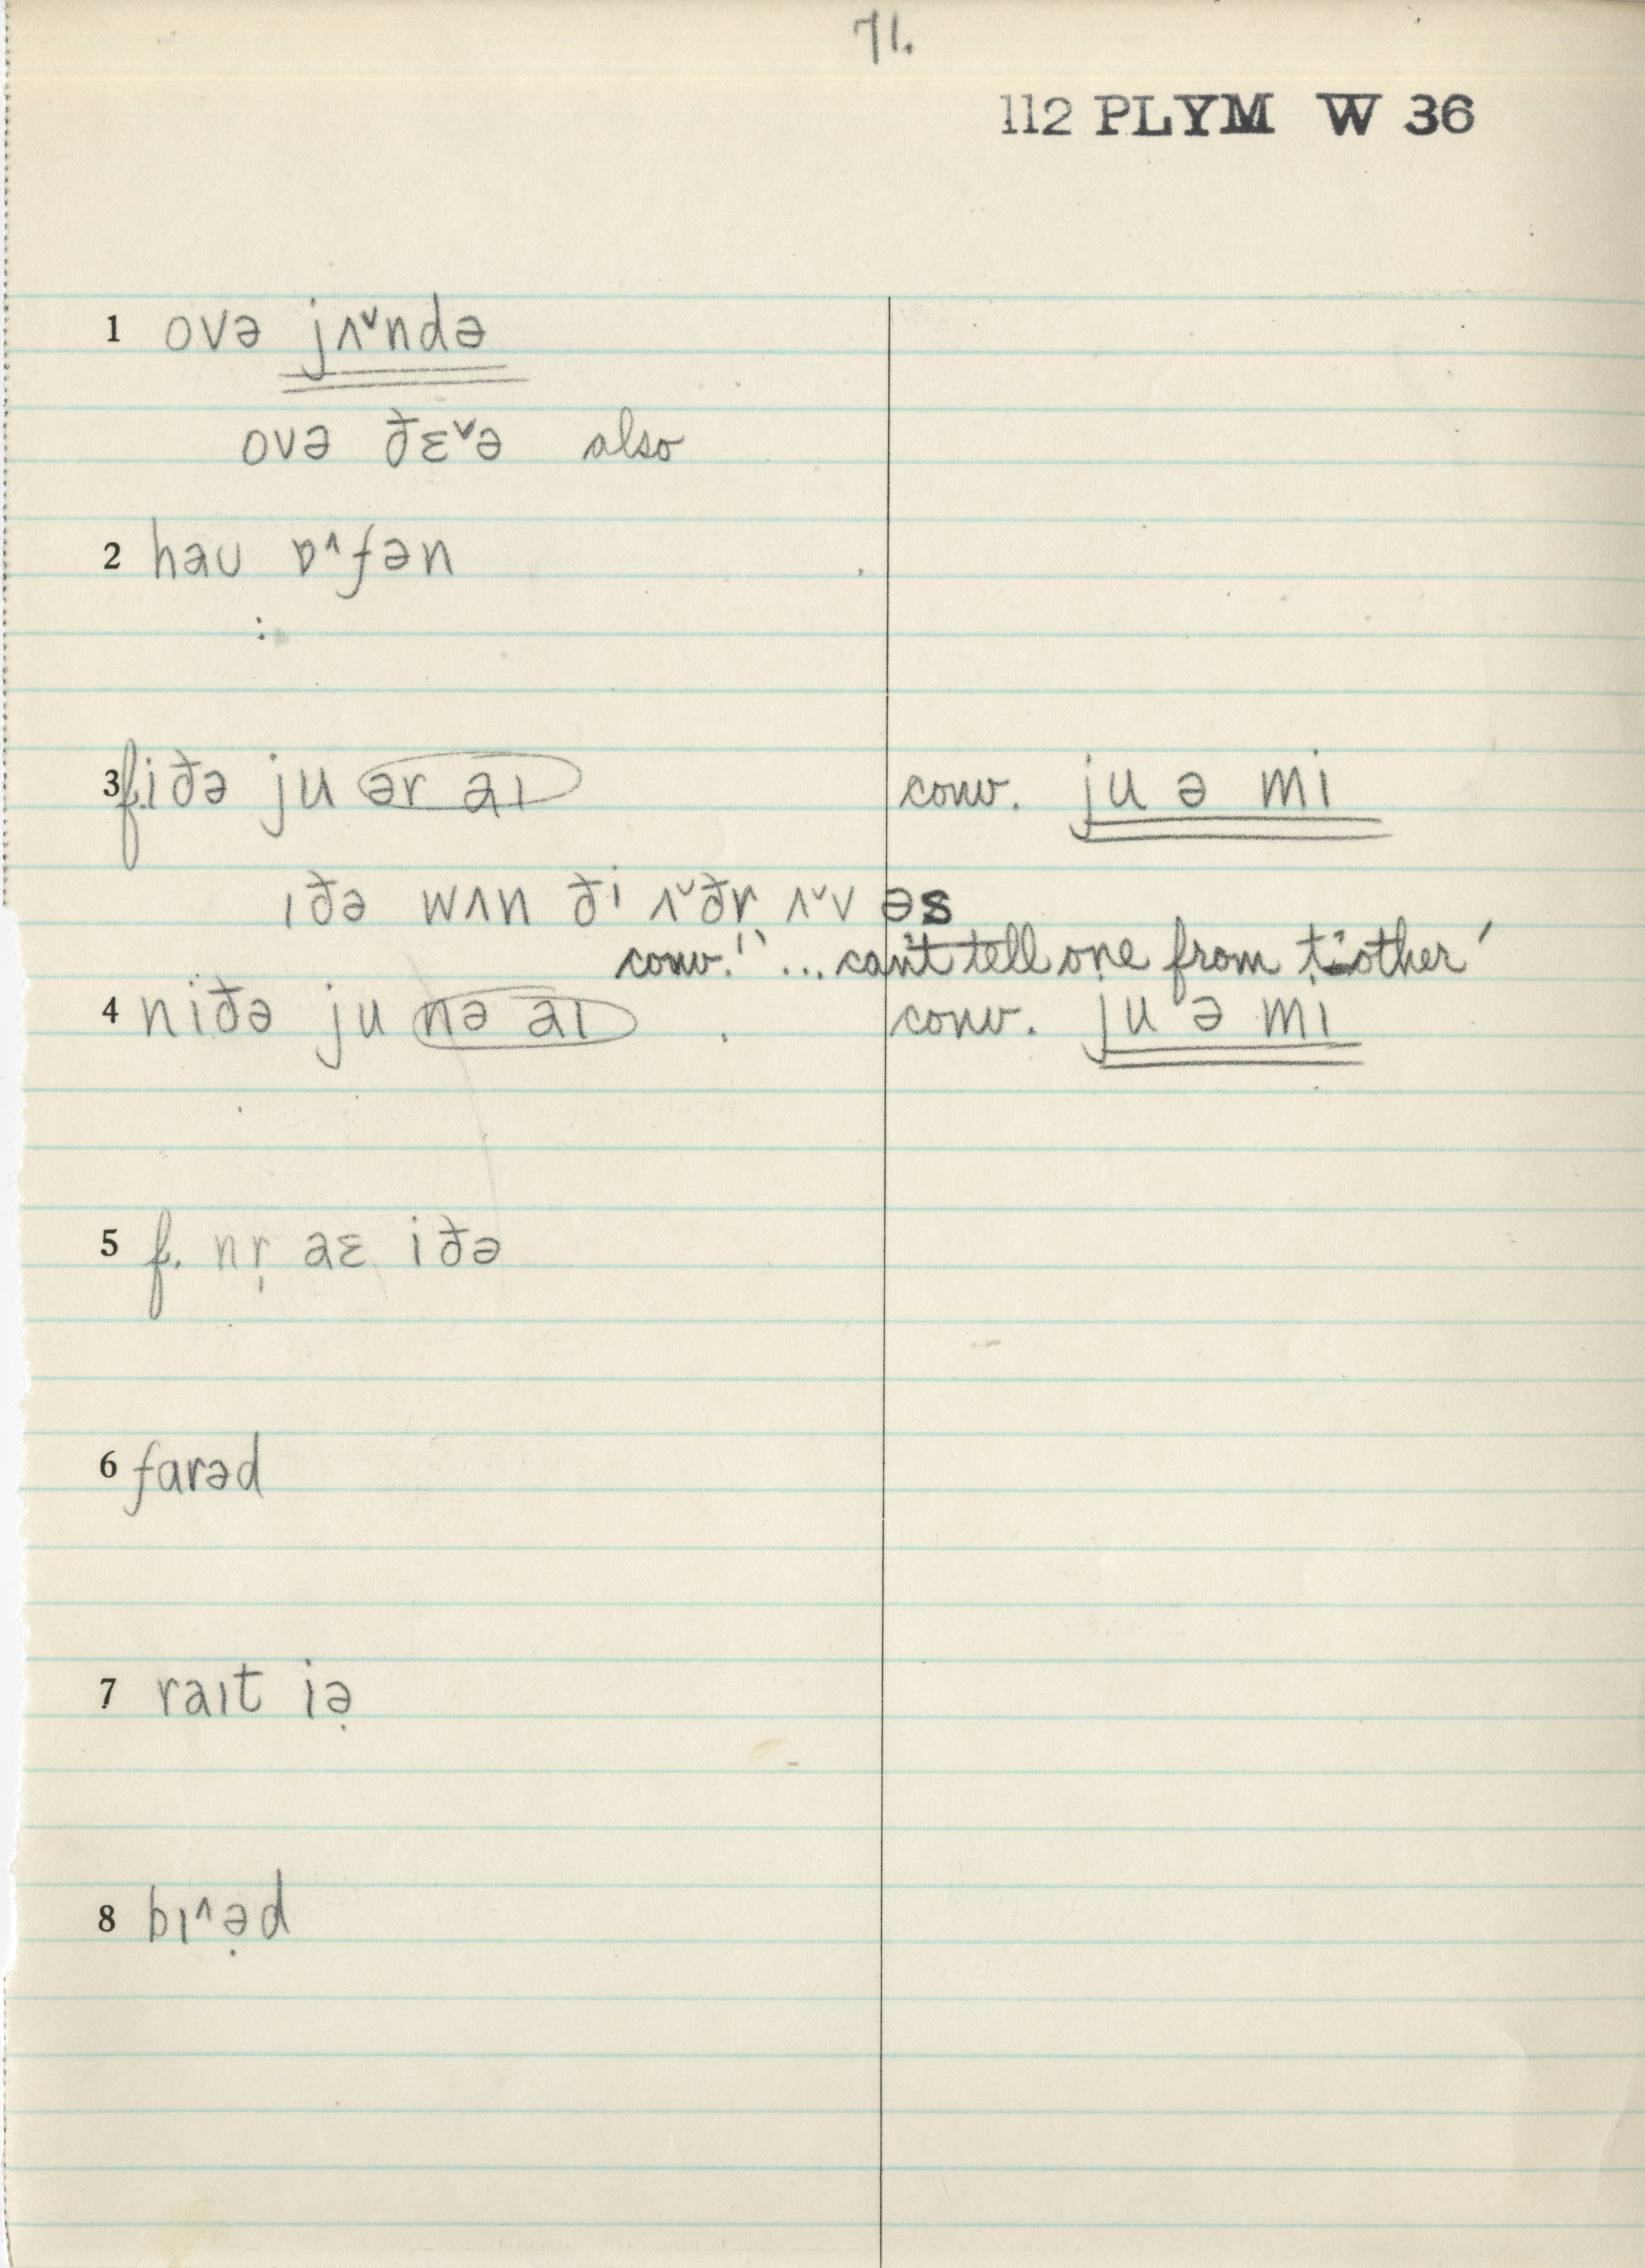 71.
112 PLYM W 36
1 ovə jʌˇndə
ovə ðɛˇə also
2 haʊ ɒ^fən
:
3 f. iðə ju ər aɪ conv. ju ə mi
ɪðə wʌn ði ʌˇðr ʌˇv əs
conv. '' ... can't tell one from t'other'
4 niðə ju nə aɪ . conv. ju ə mi
5 f. nr̩ aɛ iðə
6 farəd
7 raɪt iə̣
8 bɪ^ə̣d